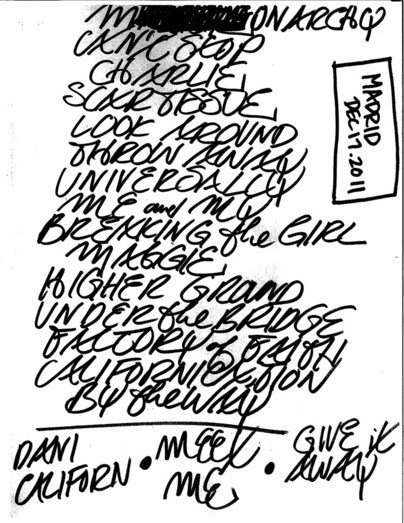 MONARCHY
CAN'T STOP
CHARLIE
SCAR TISSUE
LOOK AROUND
THROW AWAY
UNIVERSALLY
ME and MY
BREAKING the GIRL
MAGGIE
HIGHER GROUND
UNDER the BRIDGE
FACTORY of FAITH
CALIFORNICATION
BY the WAY
DANI
CALIFORN • MEET
ME • GIVE it
AWAY
MADRID
DEC. 17. 2011